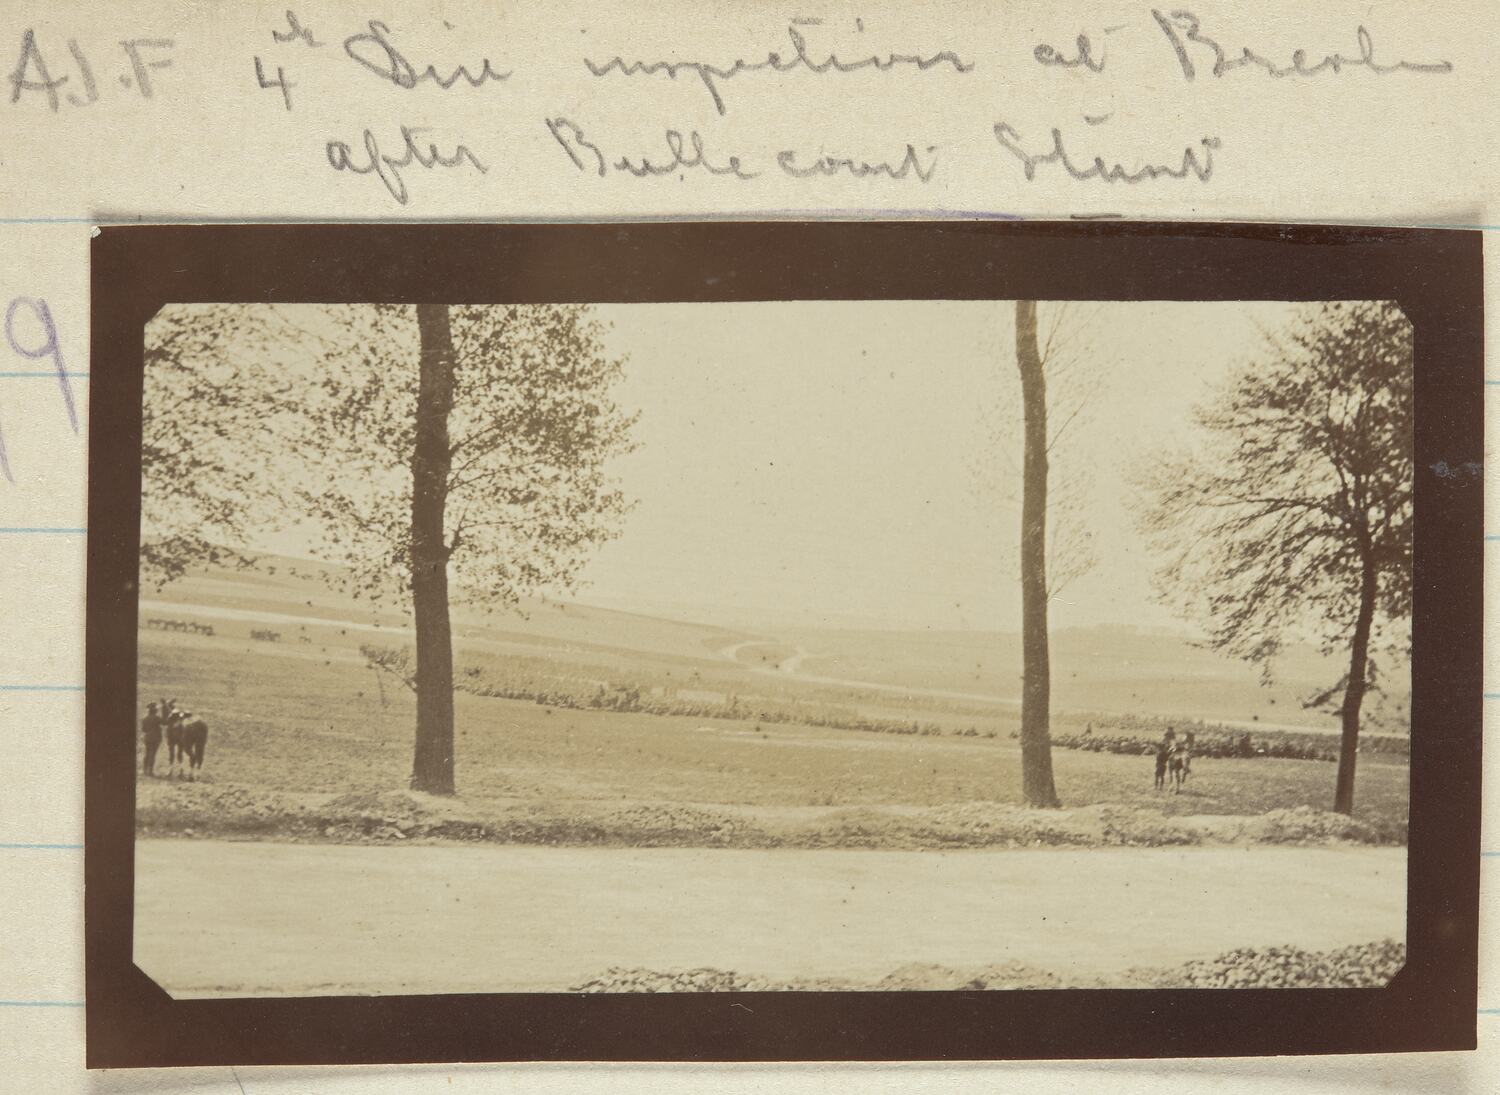 A.I.F 4th Div inspection at Bresle
after Bullecourt Stunt
9